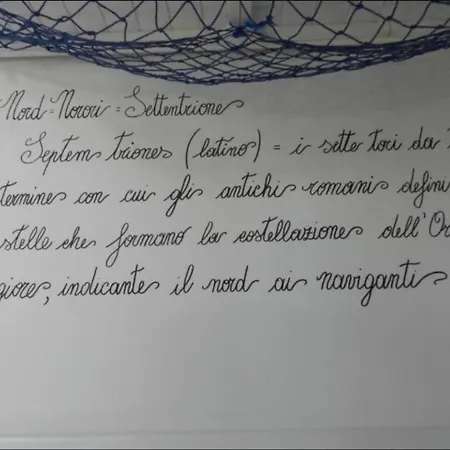 Nord = Norori = Settentrione
Septem triones (latino) = i sette tori da
termine con cui gli antichi romani defini
stelle che formano la costellazione dell'Or
giore, indicante il nord ai naviganti